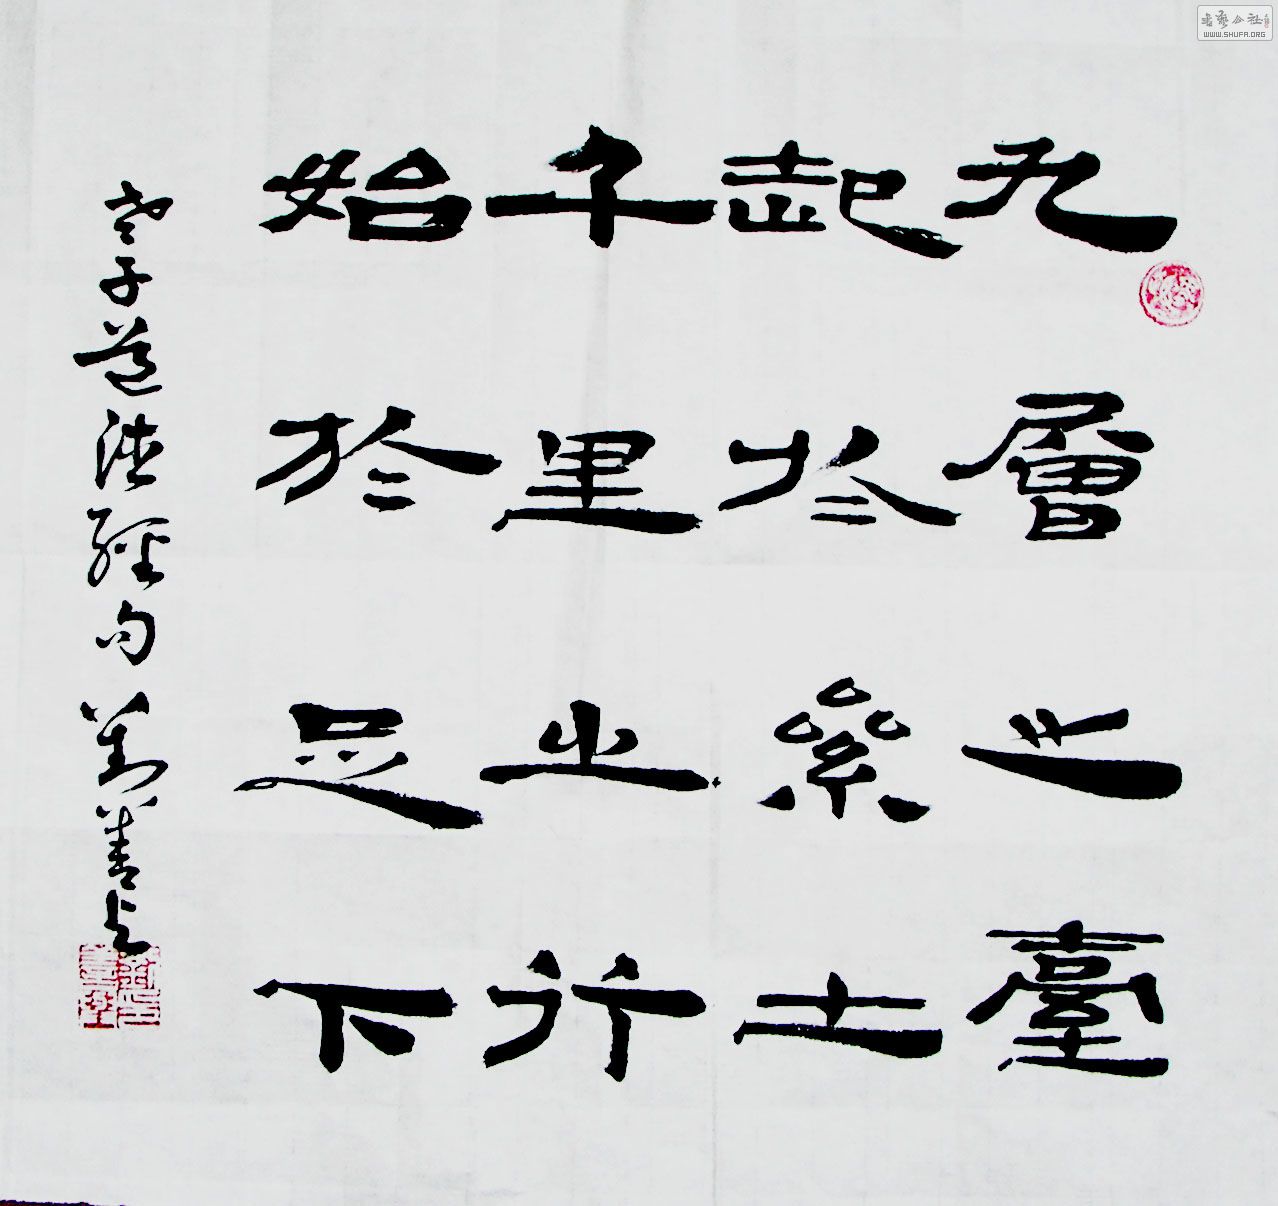 九層之臺
起於絫土
千里之行
始於足下
老子道德經句
書藝公社
WWW.SHUFA.ORG